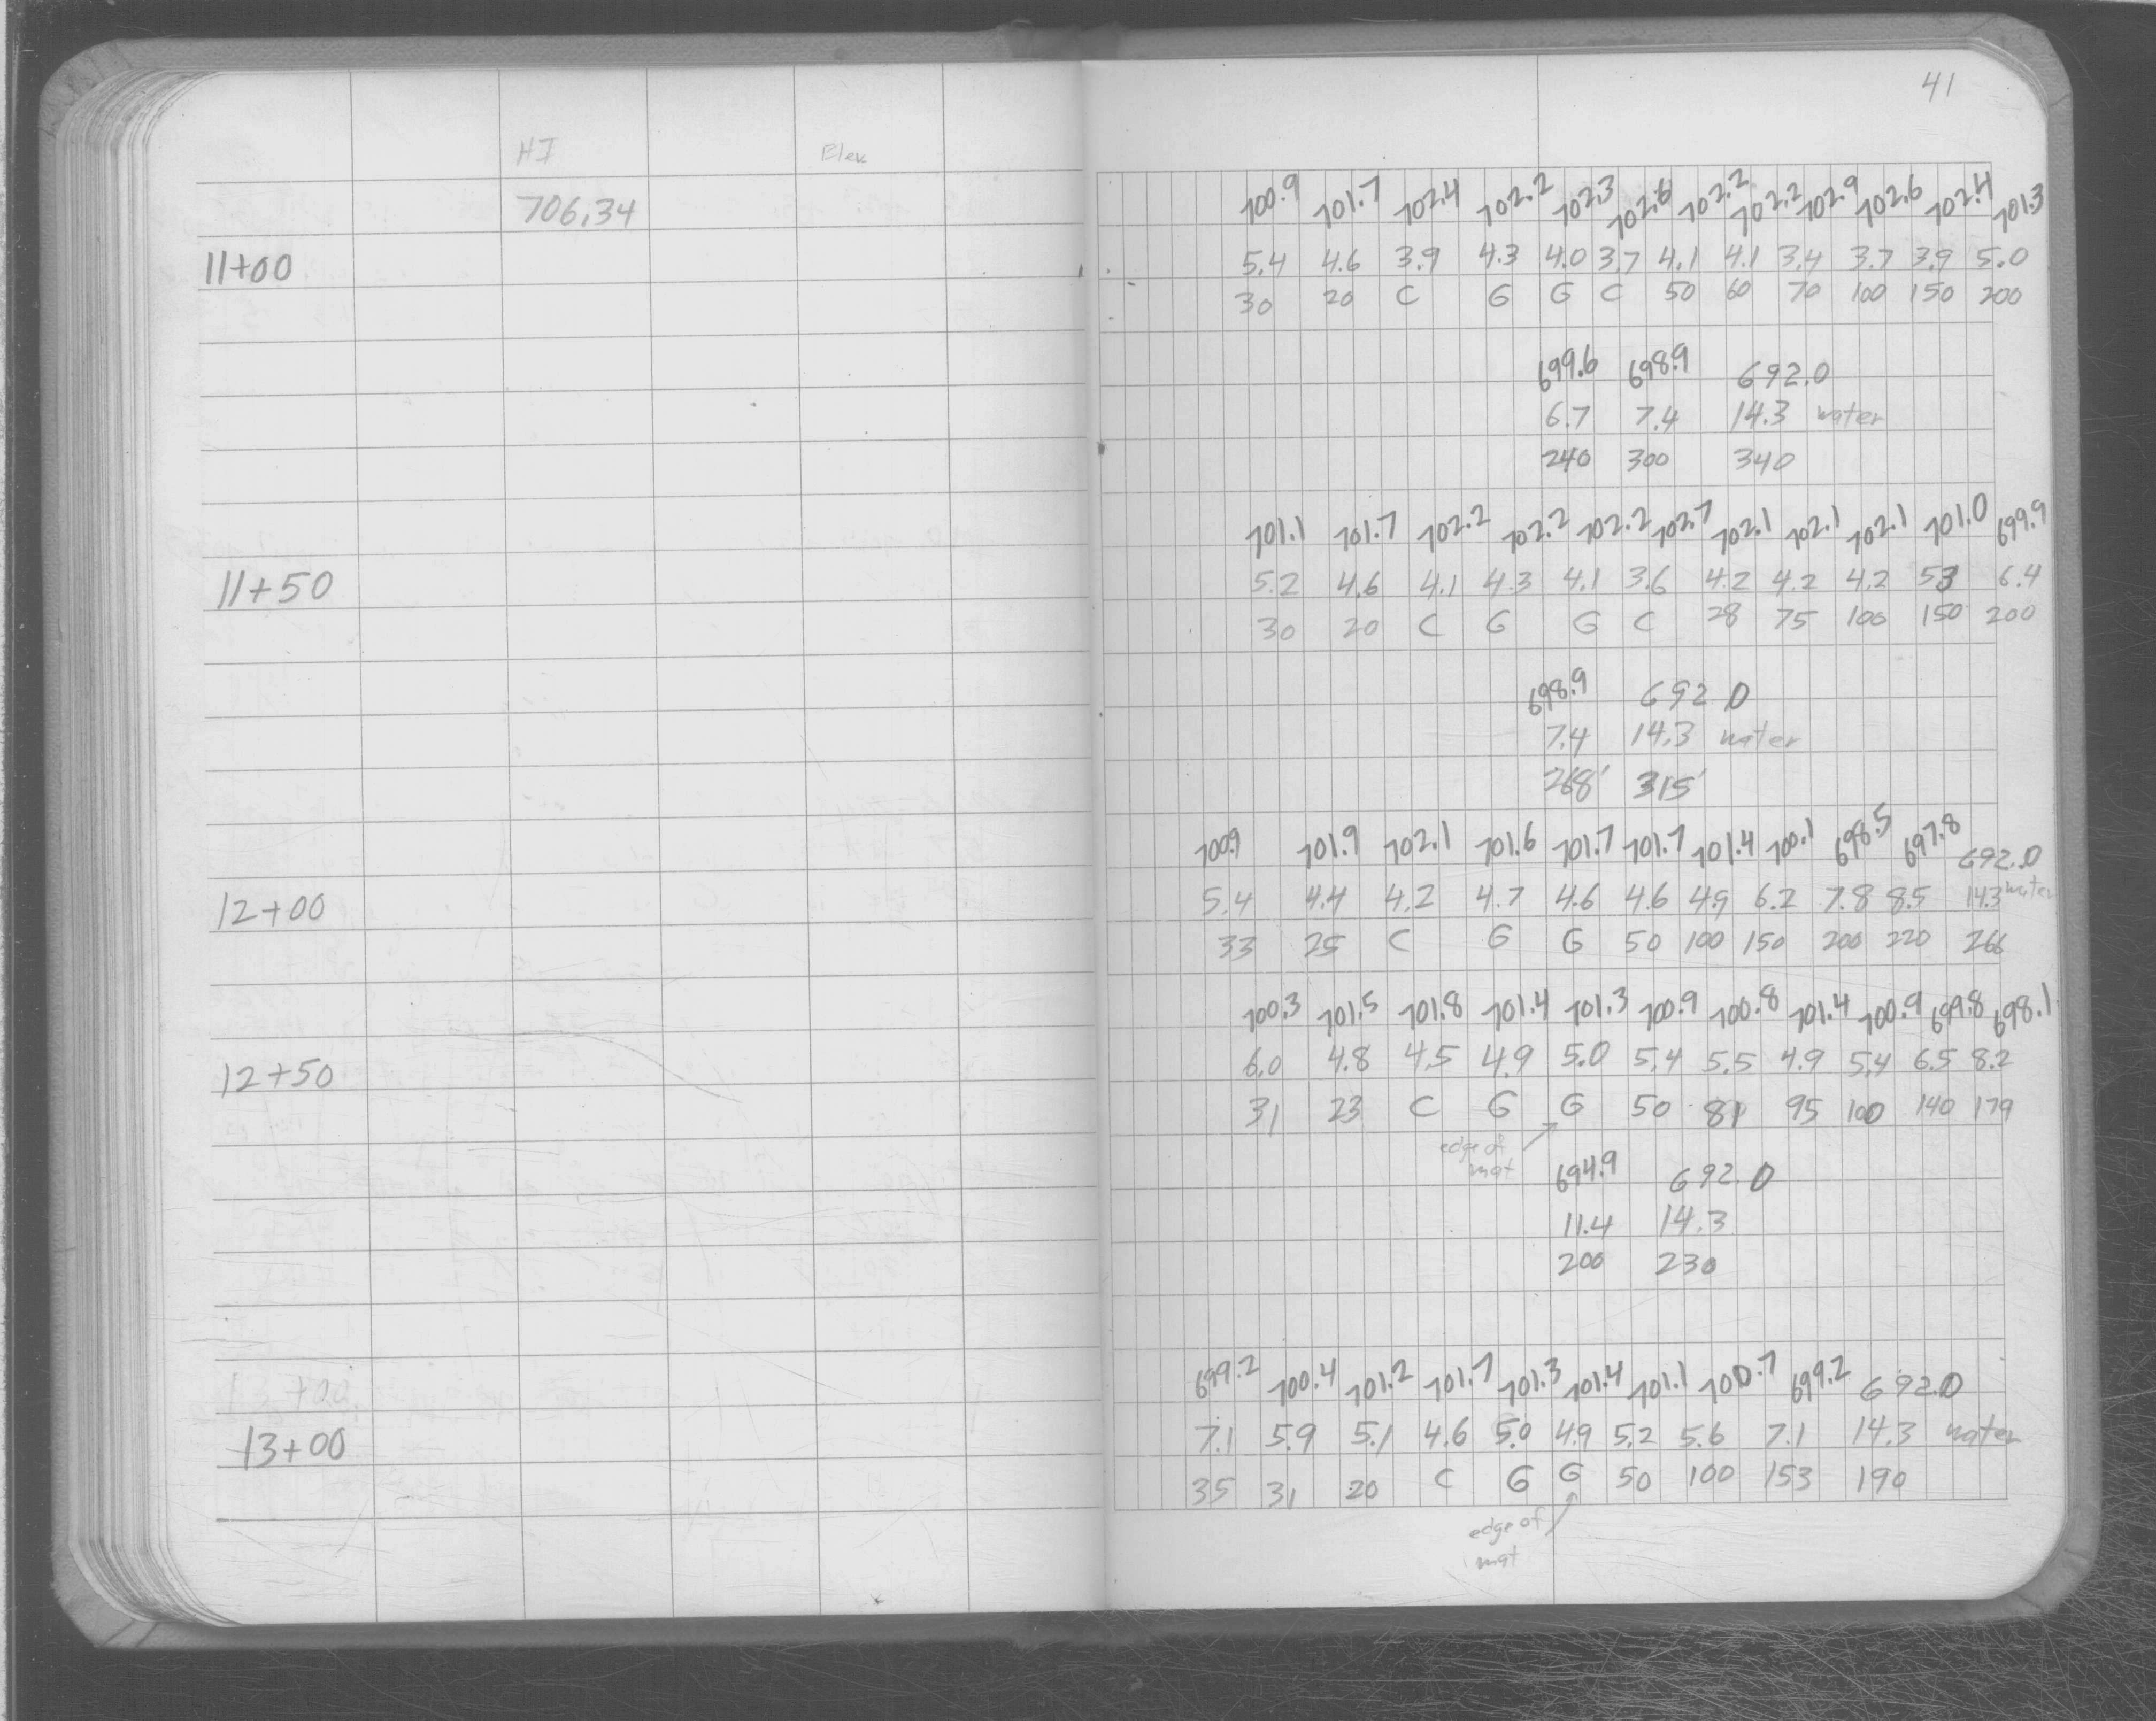 41
HI Elev
706.34
700.9 701.7 702.4 702.2 702.3 702.6 702.2 702.2 702.9 702.6 702.4 701.3
11+00 5.4 4.6 3.9 4.3 4.0 3.7 4.1 4.1 3.4 3.7 3.9 5.0
30 20 C G G C 50 60 70 100 150 200
699.6 698.9 692.0
6.7 7.4 14.3 water
240 300 340
701.1 701.7 702.2 702.2 702.2 702.7 702.1 702.1 702.1 701.0 699.9
11+50 5.2 4.6 4.1 4.3 4.1 3.6 4.2 4.2 4.2 53 6.4
30 20 C G G C 28 75 100 150 200
698.9 692.0
7.4 14.3 water
268' 315'
700.9 701.9 702.1 701.6 701.7 701.7 701.4 700.1 698.5 697.8 692.0
12+00 5.4 4.4 4.2 4.7 4.6 4.6 4.9 6.2 7.8 8.5 14.3 water
33 25 C G G 50 100 150 200 220 266
700.3 701.5 701.8 701.4 701.3 700.9 700.8 701.4 700.9 699.8 698.1
12+50 6.0 4.8 4.5 4.9 5.0 5.4 5.5 4.9 5.4 6.5 8.2
31 23 C G G 50 81 95 100 140 179
edge of
mat
694.9 692.0
11.4 14.3
200 230
699.2 700.4 701.2 701.7 701.3 701.4 701.1 700.7 699.2 692.0
13+00
13+00 7.1 5.9 5.1 4.6 5.0 4.9 5.2 5.6 7.1 14.3 water
35 31 20 C G G 50 100 153 190
edge of
mat